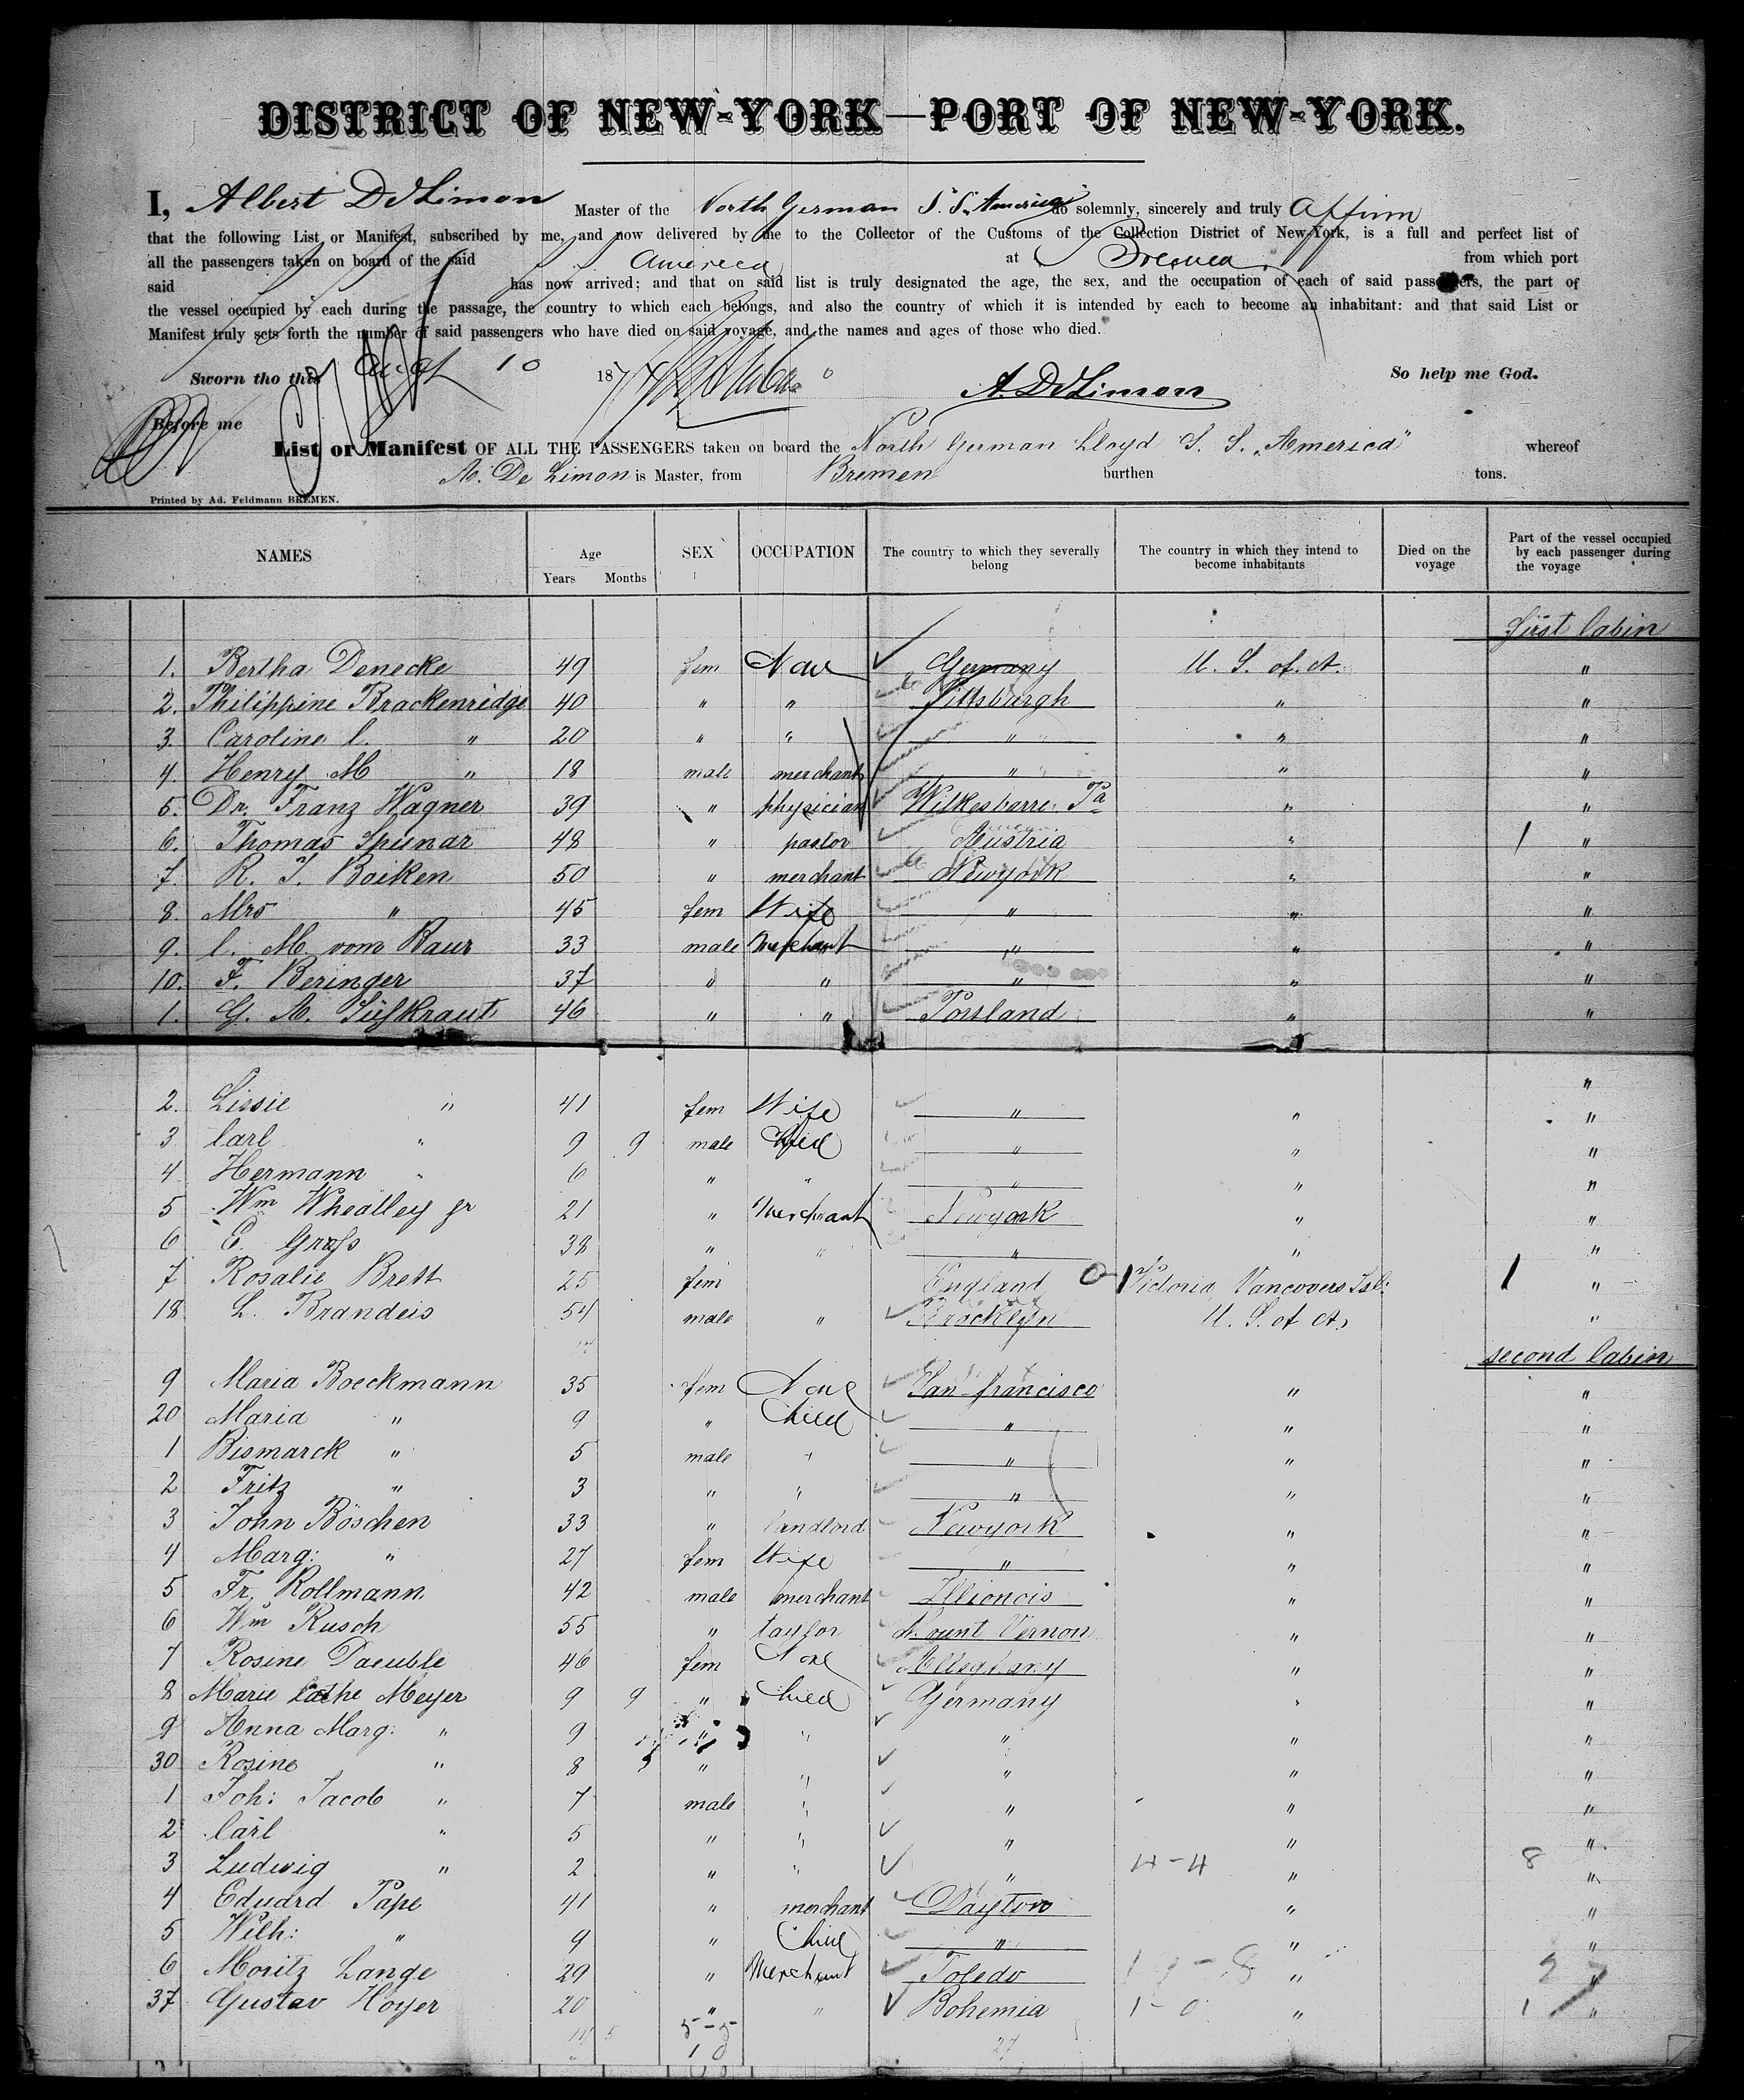 DISTRICT OF NEW-YORK—PORT OF NEW-YORK.
I, Albert DeLimon Master of the North German S.S. America do solemnly, sincerely and truly Affirm
that the following List or Manifest, subscribed by me, and now delivered by me to the Collector of the Customs of the Collection District of New-York, is a full and perfect list of
all the passengers taken on board of the said America at Bremen from which port
said has now arrived; and that on said list is truly designated the age, the sex, and the occupation of each of said passengers, the part of
the vessel occupied by each during the passage, the country to which each belongs, and also the country of which it is intended by each to become an inhabitant: and that said List or
Manifest truly sets forth the number of said passengers who have died on said voyage, and the names and ages of those who died.
Sworn tho this Augt 10 1874 A. DeLimon So help me God.
Before me
List or Manifest OF ALL THE PASSENGERS taken on board the North German Lloyd S. S. „America" whereof
A. De Limon is Master, from Bremen burthen tons.
Printed by Ad. Feldmann BREMEN.
NAMES Age Years Months SEX OCCUPATION The country to which they severally belong The country in which they intend to become inhabitants Died on the voyage Part of the vessel occupied by each passenger during the voyage
first Cabin
1. Bertha Denecke 49 fem None Germany U. S. of. A. "
2. Philippine Brackenridge 40 " " Pittsburgh " "
3. Caroline C. " 20 " " " " "
4. Henry M " 18 male merchant " " "
5. Dr. Franz Wagner 39 " physician Wilkesbarre Pa " "
6. Thomas Spunar 48 " pastor Austria " 1 "
7. R. J. Boiken 50 " merchant Newyork " "
8. Mrs " 45 fem Wife " " "
9. C. M. vom Baur 33 male Merchant " " "
10. F. Beringer 37 " " " " "
1. G. A. Süßkraut 46 " " Portland " "
2. Lissie " 41 fem Wife " " "
3 Carl " 9 9 male Child " " "
4 Hermann " 6 " " " " "
5 Wm Wheatley jr 21 " Merchant Newyork " "
6 E. Groß 38 " " " " "
7 Rosalie Brett 25 fem England Victoria Vancovers Isl: 1 "
18 L. Brandeis 54 male " Brooklyn U. S. of A. "
second Cabin
9 Maria Boeckmann 35 fem None San-francisco " "
20 Maria " 9 " Child " " "
1 Bismarck " 5 male " " " "
2 Fritz " 3 " " " " "
3 John Böschen 33 " landlord Newyork " "
4 Marg: " 27 fem Wife " " "
5 Fr. Rollmann 42 male merchant Illioncis " "
6 Wm Rusch 55 " taylor Mount Vernon " "
7 Rosine Daeuble 46 fem None Alleghany " "
8 Marie Cathe Meyer 9 9 " Child Germany " "
9 Anna Marg: " 9 " " " " "
30 Rosine " 8 " " " " "
1 Joh: Jacob " 7 male " " " "
2 Carl " 5 " " " " "
3 Ludwig " 2 " " " 4-4 " 8 "
4 Eduard Pape 41 " merchant Dayton " "
5 Wilh: " 9 " Child " " "
6 Moritz Lange 29 " Merchant Toledo " "
37 Gustav Hoyer 20 " " Bohemia 1-0 " 1 "
5-5
10
27